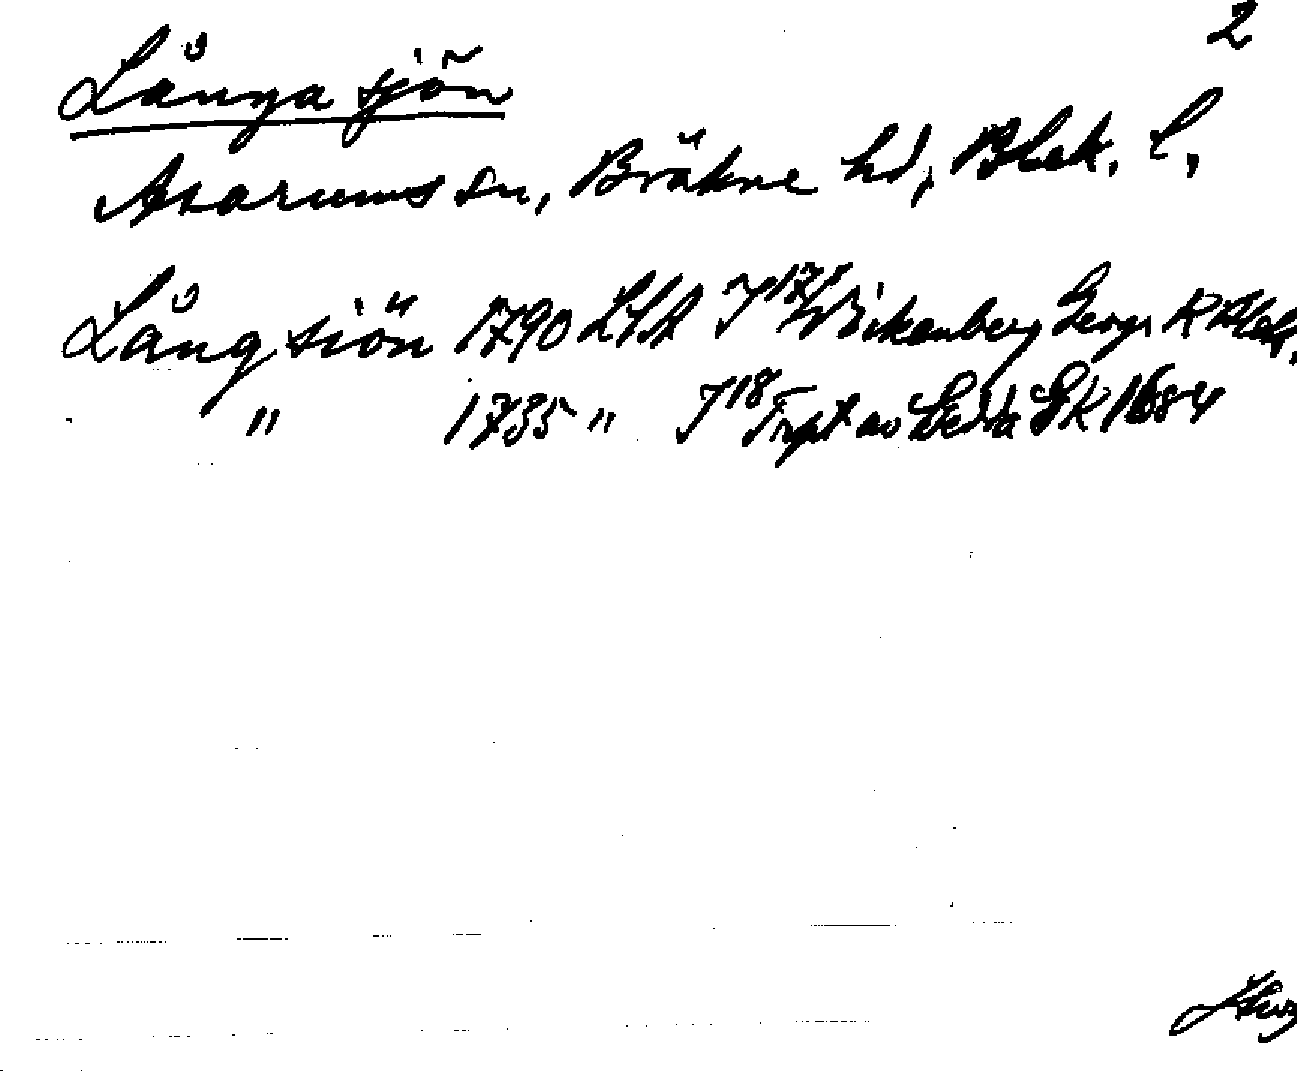 2
Långasjön
Asarums sn, Bräkne hd, Blek. l,
Långsiön 1790 LSA J 17 Wickenberg Geogr K Blek.
" 1735 " J 18 Trpt av Leda GK 1684